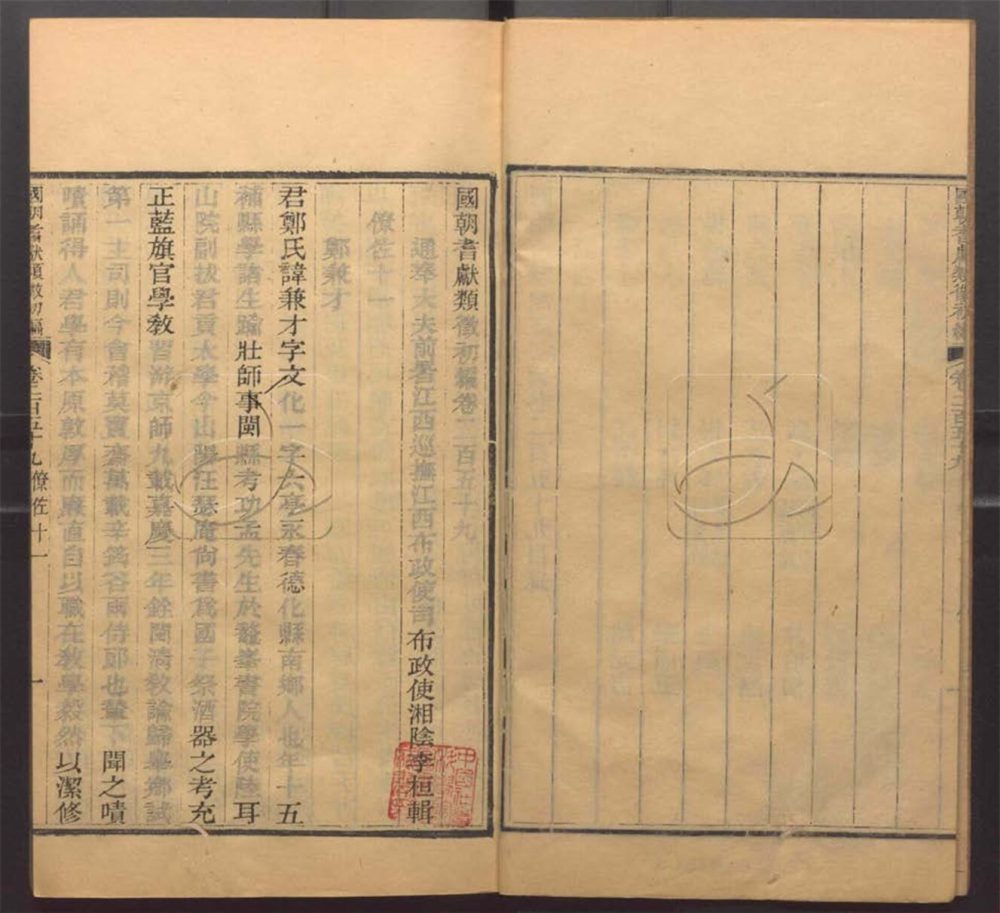 國朝耆獻類徵初編 卷二百五十九
國朝耆獻類徵初編卷二百五十九
通奉大夫前署江西巡撫江西布政使司布政使湘陰李桓輯
僚佐十一
鄭兼才
君鄭氏諱兼才字文化一字六亭永春德化縣南鄉人也年十五
補縣學諸生踰壯師事閩縣考功孟先生於鼇峯書院學使陸耳
山院副拔君貢太學今山陽汪瑟庵尚書爲國子祭酒器之考充
正藍旗官學教習游京師九載嘉慶三年銓閩清教諭歸舉鄉試
第一主司則今會稽莫寶齋萬載辛筠谷兩侍郎也輦下聞之嘖
嘖誦得人君學有本原敦厚而廉直自以職在教學毅然以潔修
國朝耆獻類徵初編 卷二百五十九 僚佐十一 一